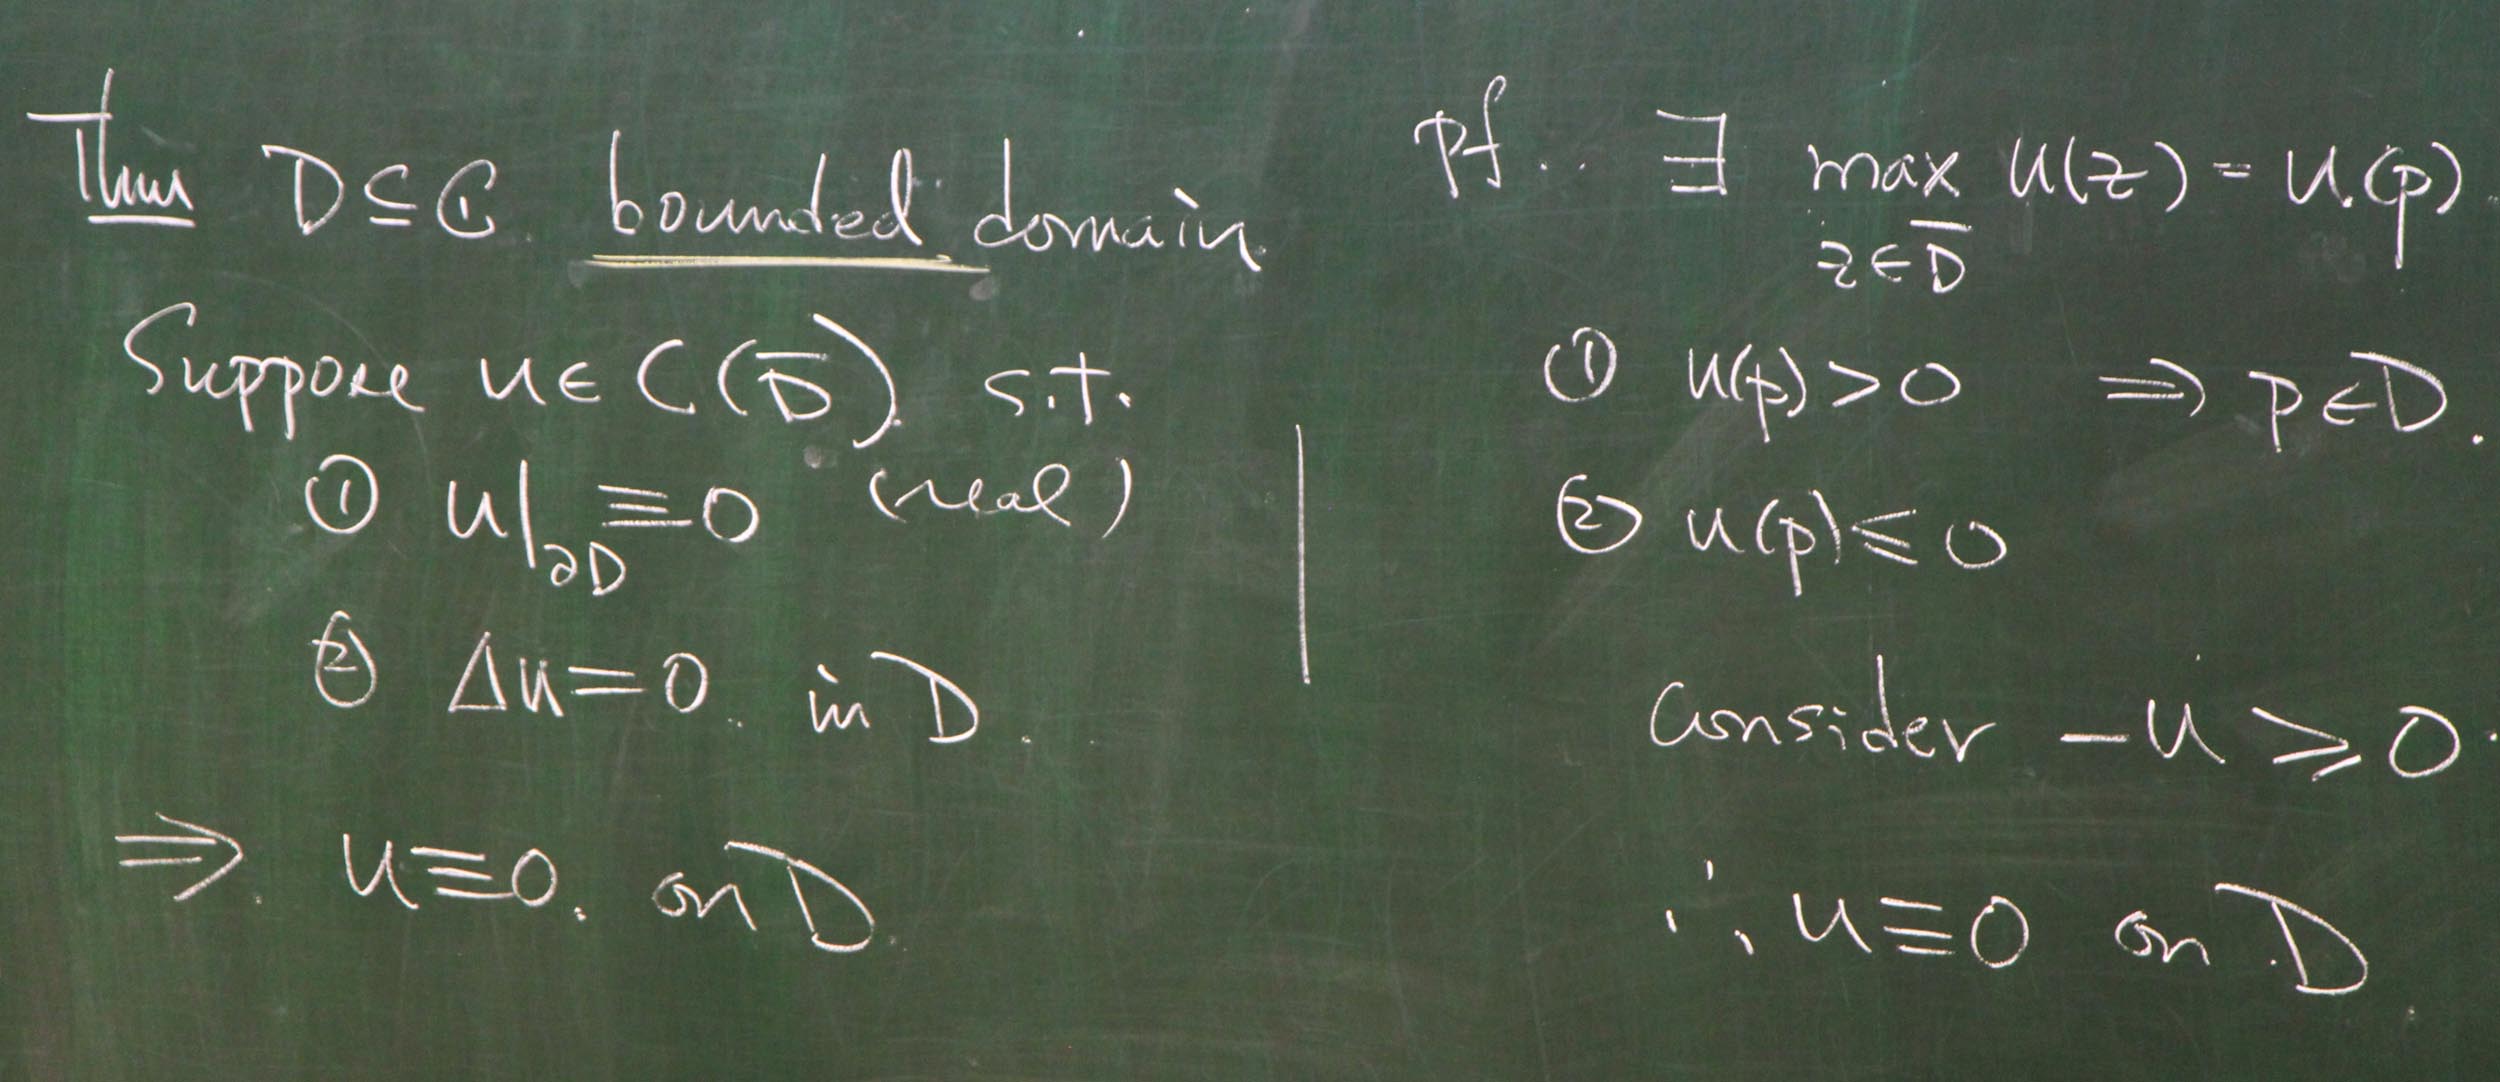 Thm D ⊆ ℂ. bounded domain.
Suppose u ∈ C(D̅). s.t.
① u|∂D ≡ 0 (real)
② Δu = 0. in D.
⇒. u ≡ 0. on D.
pf. ∃ max u(z) = u(p).
z∈D̅
① u(p) > 0 ⇒ p ∈ D.
② u(p) ≤ 0
Consider -u ≥ 0.
∴ u ≡ 0 on D.